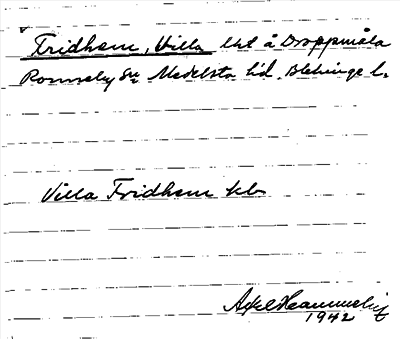 Fridhem, Villa lht å Droppmåla
Ronneby sn Medelsta hd. Blekinge l.
Villa Fridhem kb
Axel
1942